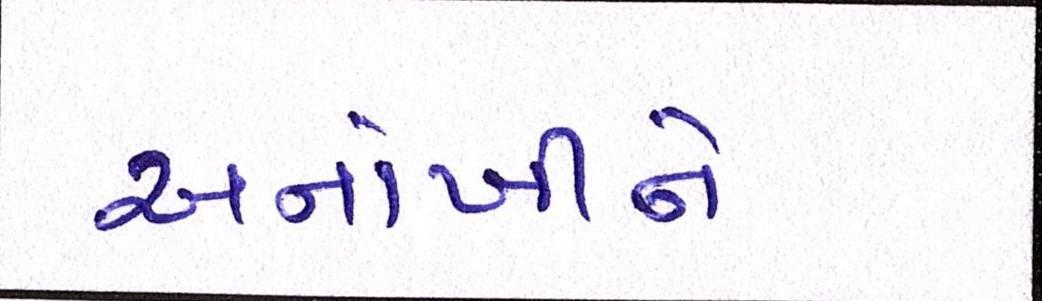 અનોખીને